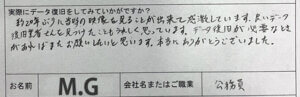 実際にデータ復旧をしてみていかがですか?
約20年ぶりに当時の映像を見ることが出来て感激しています。良いデータ
復旧業者さんを見つけたことうれしく思っています。データ復旧が必要なとき
があればまたお願いしたいと思います。本当にありがとうございました。
お名前 M.G 会社名またはご職業 公務員